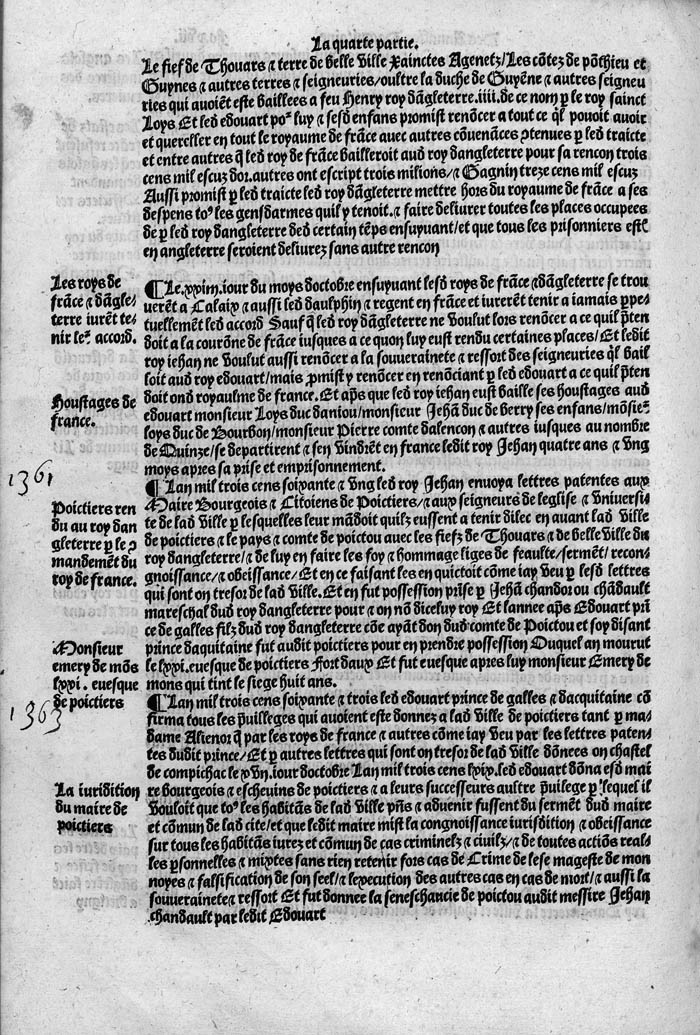 La quarte partie.
Le fief de Thouars ⁊ terre de belle ville Xainctes Agenetz/Les cõtez de põthieu et
Guynes ⁊ autres terres ⁊ seigneuries/oultre la duche de Guyẽne ⁊ autres seigneu
ries qui auoiẽt este baillees a feu Henry roy dãgleterre.iiii.de ce nom ꝑ le roy sainct
Loys Et led edouart poꝰ luy ⁊ sesd enfans promist renõcer a tout ce qͥl pouoit auoir
et quereller en tout le royaume de frãce auec autres cõuenãces ꝯtenues ꝑ led traicte
et entre autres q̃ led roy de frãce bailleroit aud roy dangleterre pour sa rencon trois
cens mil escuz dor.autres ont escript trois milions/⁊ Gagnin treze cens mil escuz
Aussi promist ꝑ led traicte led roy dãgleterre mettre hors du royaume de frãce a ses
despens toꝰ les gensdarmes quil y tenoit.⁊ faire deliurer toutes les places occupees
de ꝑ led roy dangleterre ded certain tẽps ensuyuant/et que tous les prisonniers estã
en angleterre seroient deliurez sans autre rencon
Les roys de
frãce ⁊ dãgle/
terre iurẽt te/
nir leꝰ accord.
¶Le.xxiiii.iour du moys doctobre ensuyuant lesd roys de frãce ⁊ dãgleterre se trou
uerẽt a Calaix ⁊ aussi led daulphin ⁊ regent en frãce et iurerẽt tenir a iamais ꝑpe-
tuellement led accord Sauf q̃ led roy dãgleterre ne voulut lors renõcer a ce quil p̃ten
doit a la courõne de frãce iusques a ce quon luy eust rendu certaines places/Et ledit
roy iehan ne voulut aussi renõcer a la souuerainete ⁊ ressort des seigneuries qͥl bail
loit aud roy edouart/mais ꝓmist y renõcer en renõciant ꝑ led edouart a ce quil p̃ten
doit ond royaulme de france. Et ap̃s que led roy iehan eust baille ses houstages aud
Houstages de
france.
edouart monsieur Loys duc daniou/monsieur Jehã duc de berry ses enfans/mõsieꝰ
loys duc de Bourbon/monsieur Pierre comte dalencon ⁊ autres iusques au nombre
de Quinze/se departirent ⁊ sen vindrẽt en france ledit roy Jehan quatre ans ⁊ vng
moys apres sa prise et emprisonnement.
1361
¶Lan mil trois cens soixante ⁊ vng led roy Jehan enuoya lettres patentes aux
Maire Bourgeois ⁊ Citoiens de Poictiers/⁊ aux seigneurs de leglise ⁊ vniuersi
Poictiers ren
du au roy dan
gleterre ꝑ le ꝯ
mandemẽt du
roy de france.
te de lad ville ꝑ lesquelles leur mãdoit quilz eussent a tenir dilec en auant lad ville
de poictiers ⁊ le pays ⁊ comte de poictou auec les fiefz de Thouars ⁊ de belle ville du
roy dangleterre/⁊ de luy en faire les foy ⁊ hommage liges de feaulte/sermẽt/recon-
gnoissance/⁊ obeissance/Et en ce faisant les en quictoit cõme iay veu ꝑ lesd lettres
qui sont on tresor de lad ville.Et en fut possession prise ꝑ Jehã chandor ou chãdault
mareschal dud roy dangleterre pour ⁊ on nõ diceluy roy Et lannee ap̃s Edouart pri
ce de galles filz dud roy dangleterre cõe ayãt don dud comte de Poictou et soy disant
prince daquitaine fut audit poictiers pour en prendre possession Ouquel an mourut
Monsieur
emery de mõs
lxxi . euesque
de poictiers
le lxxi.euesque de poictiers Fort daux Et fut euesque apres luy monsieur Emery de
mons qui tint le siege huit ans.
1363
¶Lan mil trois cens soixante ⁊ trois led edouart prince de galles ⁊ dacquitaine cõ
firma tous les p̃uileges qui auoient este donnez a lad ville de poictiers tant ꝑ ma-
dame Alienor q̃ par les roys de france ⁊ autres cõme iay veu par les lettres paten-
tes dudit prince/Et ꝑ autres lettres qui sont on tresor de lad ville dõnees on chastel
de compichac le xvii.iour doctobre Lan mil trois cens lxix.led edouart dõna esd mai
La iuridition
du maire de
poictiers
re bourgeois ⁊ escheuins de poictiers ⁊ a leurs successeurs aultre p̃uilege ꝑ lequel il
vouloit que toꝰ les habitãs de lad ville p̃ñs ⁊ aduenir fussent du sermẽt dud maire
et cõmun de lad cite/et que ledit maire mist la congnoissance iurisdition ⁊ obeissance
sur tous les habitãs iurez et cõmun de cas criminelz ⁊ ciuilz/⁊ de toutes actiõs real-
les ꝑsonnelles ⁊ mixtes sans rien retenir fors cas de Crime de lese mageste de mon
noyes ⁊ falsification de son seel/⁊ lexecution des autres cas en cas de mort/⁊ aussi la
souuerainete ⁊ ressort Et fut donnee la seneschancie de poictou audit messire Jehan
chandault par ledit Edouart